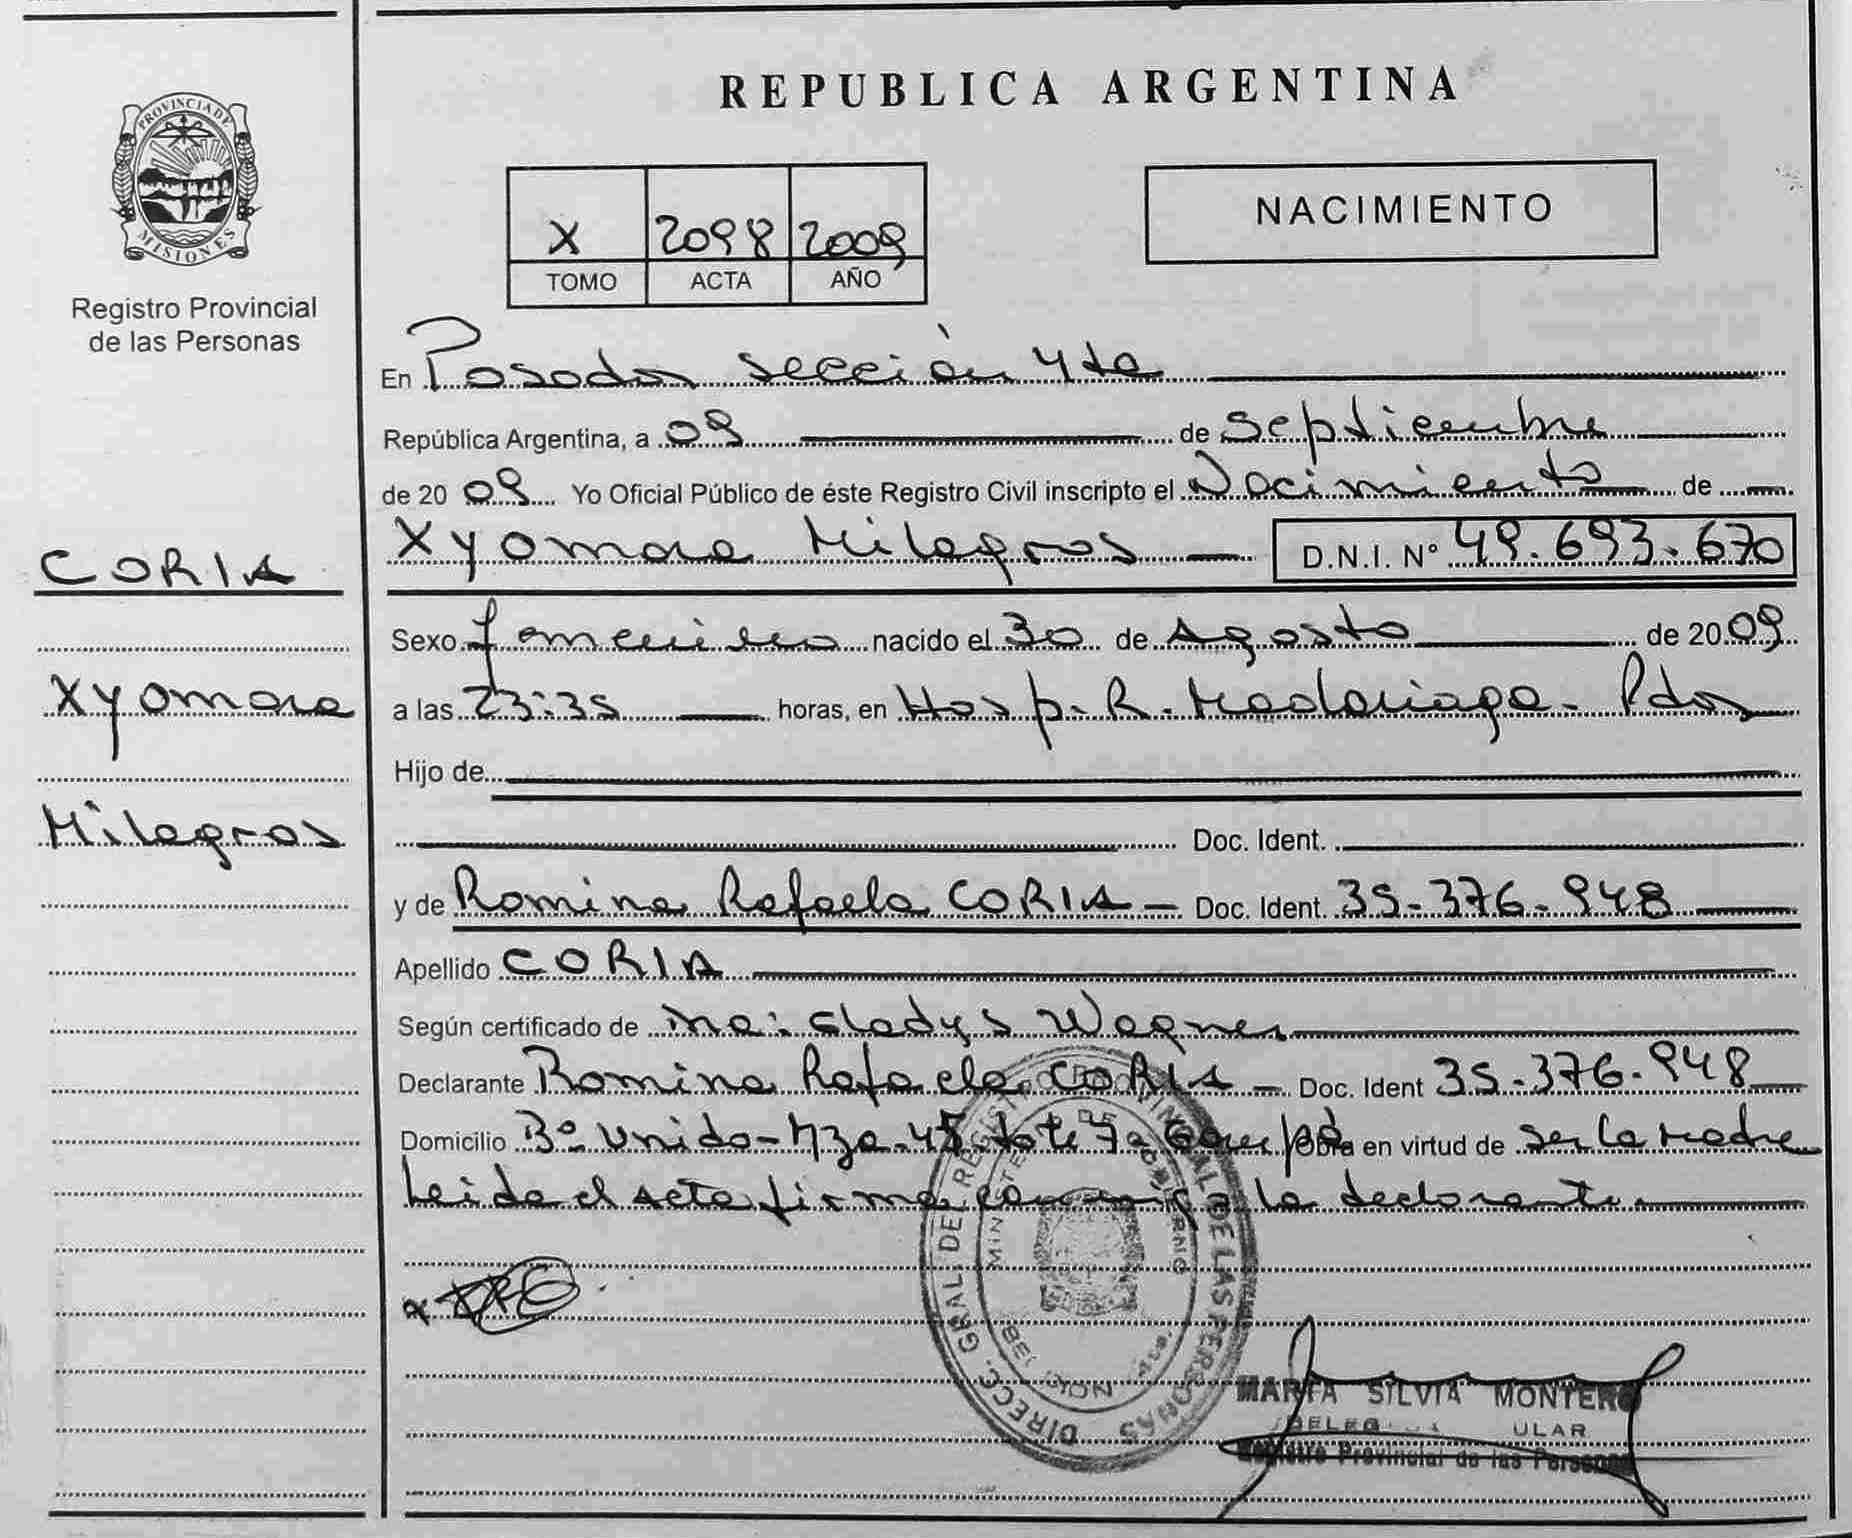 REPUBLICA ARGENTINA
PROVINCIA DE
MISIONES
Registro Provincial
de las Personas
X 2098 2009
TOMO ACTA AÑO
NACIMIENTO
En Posadas sección 4ta
República Argentina, a 09 de septiembre
de 20 09 Yo Oficial Público de éste Registro Civil inscripto el Nacimiento de
Xyomara Milagros D.N.I. Nº 49.693.670
CORIA
Xyomara
Milagros
Sexo femenino nacido el 30 de Agosto de 2009
a las 23:35 horas, en Hosp. R. Madariaga - Pdas
Hijo de
Doc. Ident.
y de Romina Rafaela CORIA Doc. Ident. 35.376.948
Apellido CORIA
Según certificado de Gladys Wagner
Declarante Romina Rafaela CORIA Doc. Ident 35.376.948
Domicilio Bº Unido - Mza. 45 Lote 9 - Garupá Obra en virtud de ser la madre
Leida el acta firma conmigo la declarante
DIRECC. GRAL DEL REGISTRO PROVINCIAL DE LAS PERSONAS
MINISTERIO DE GOBIERNO
MARTA SILVIA MONTERO
Registro Provincial de las Personas